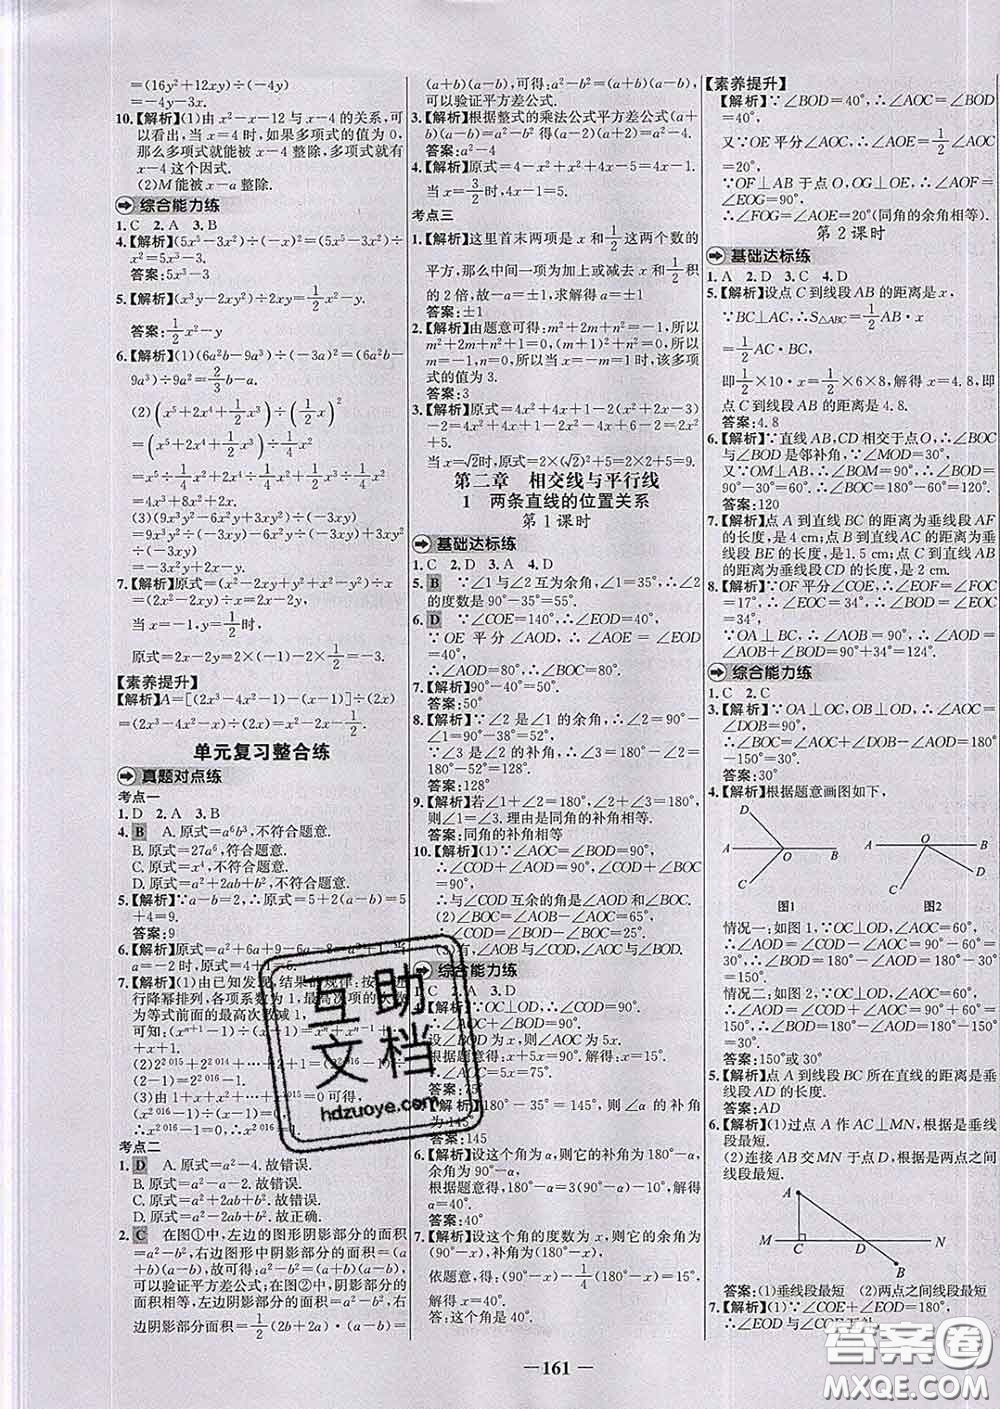 =(16y²+12xy)÷(-4y)
=-4y-3x.
10.【解析】(1)由 x²-x-12 与 x-4 的关系,可
以看出,当 x=4 时,如果多项式的值为 0,
那么多项式就能被 x-4 整除,多项式就有
x-4 这个因式.
(2)M 能被 x-a 整除.
综合能力练
1. C 2. A 3. B
4.【解析】(5x⁵-3x²)÷(-x)²=(5x⁵-3x²)÷
x²=5x³-3
答案:5x³-3
5.【解析】(x³y-2xy²)÷2xy=1/2x²-y.
答案:1/2x²-y
6.【解析】(1)(6a²b-9a³)÷(-3a)²=(6a²b-
9a³)÷9a²=2/3b-a.
(2)(x⁵+2x⁴+1/2x³)÷(1/2x)²
=(x⁵+2x⁴+1/2x³)÷1/4x²
=x⁵÷1/4x²+2x⁴÷1/4x²+1/2x³÷1/4x²
=4x³+8x²+2x.
(3)(9x³y-6x²y²+3xy³)÷(-3xy)
=9x³y÷(-3xy)-6x²y²÷(-3xy)+3xy³÷
(-3xy)
=-3x²+2xy-y².
7.【解析】原式=(x²-2xy+y²+x²-y²)÷x
=(2x²-2xy)÷x=2x-2y,
当 x=-1,y=1/2时,
原式=2x-2y=2×(-1)-2×1/2=-3.
【素养提升】
【解析】A=[(2x³-4x²-1)-(x-1)]÷(2x)
=(2x³-4x²-x)÷(2x)=x²-2x-1/2.
单元复习整合练
真题对点练
考点一
1. D 2. A 3. B
4. B A. 原式=a⁶b³,不符合题意.
B. 原式=27a⁶,符合题意.
C. 原式=x⁴,不符合题意.
D. 原式=a²+2ab+b²,不符合题意.
5.【解析】∵a-b=2,∴原式=5+2(a-b)=5
+4=9.
答案:9
6.【解析】原式=a²+6a+9-6a-8=a²+1,当
a=-2 时,原式=4+1=5.
7.【解析】(1)由已知发现,结果的规律:按
进行降幂排列,各项系数为 1,最高次项的次数
为等式前面的最高次数减 1
可知:(xⁿ⁺¹-1)÷(x-1)=xⁿ+xⁿ⁻¹+…
+x+1.
(2)2²⁰¹⁵+2²⁰¹⁴+…
(2-1)=2²⁰¹⁶-1.
(3)由 1+x+x²+…=0 可得,
(x²⁰¹⁶-1)÷
∴x²⁰¹⁶-1=0,∴x²⁰¹⁶=1.
考点二
1. D A. 原式=a²-4. 故错误.
B. 原式=a²-a-2. 故错误.
C. 原式=a²+2ab+b². 故错误.
D. 原式=a²-2ab+b². 故正确.
2. C 在图①中,左边的图形阴影部分的面积
=a²-b²,右边图形中阴影部分的面积=(a+
b)(a-b),故可得:a²-b²=(a+b)(a-b),
可以验证平方差公式;在图②中,阴影部分的
面积相等,左边阴影部分的面积=a²-b²,
右边阴影部分面积=1/2(2b+2a)·(a-b)=
(a+b)(a-b),可得:a²-b²=(a+b)(a-b),
可以验证平方差公式.
3.【解析】根据整式的乘法公式平方差公式,
(a+b)(a-b)=a²-b² 得(a-2)(a+2)=a²-4.
答案:a²-4
4.【解析】原式=4-x²+x²+4x-5=4x-1.
当 x=3/2时,4x-1=5.
考点三
1.【解析】这里首末两项是 x 和1/2这两个数的
平方,那么中间一项为加上或减去 x 和1/2积
的 2 倍,故-a=±1,求解得 a=±1.
答案:±1
2.【解析】由题意可得:m²+2m+n²=-1,所以
m²+2m+1+n²=0,(m+1)²+n²=0,所以
m=-1,n=0,所以当 x=-m=1 时,该多项
式的值为 3.
答案:3
3.【解析】原式=4x²+4x+1-2(x²+2x-3)
-2=4x²+4x+1-2x²-4x+6-2=2x²
+5.
当 x=√2时,原式=2×(√2)²+5=2×2+5=9.
第二章 相交线与平行线
1 两条直线的位置关系
第 1 课时
基础达标练
1. C 2. D 3. A 4. D
5. B ∵∠1 与∠2 互为余角,∠1=35°,∴∠2
的度数是 90°-35°=55°.
6. D ∵∠COE=140°,∴∠EOD=40°,
∵ OE 平分∠AOD, ∴∠AOE=∠EOD
=40°,
∴∠AOD=80°,∴∠BOC=80°.
7.【解析】90°-40°=50°.
答案:50°
8.【解析】∵∠2 是∠1 的余角,∴∠2=90°-
∠1=90°-38°=52°,
∵∠3 是∠2 的补角,∴∠3=180°-∠2=
180°-52°=128°.
答案:128°
9.【解析】若∠1+∠2=180°,∠3+∠2=180°,
则∠1=∠3. 理由是同角的补角相等.
答案:同角的补角相等
10.【解析】(1)∵∠AOC=∠BOD=90°,
∴∠COD+∠AOD=90°,∠COD+∠BOC
=90°,
∴与∠COD 互余的角是∠AOD 和∠BOC.
(2)∠BOC=∠AOD=65°,
∴∠COD=∠BOD-∠BOC=25°.
(3)有,∠AOB 与∠COD,∠AOC 与∠BOD.
综合能力练
1. C 2. A 3. D
∵OC⊥OD,∴∠COD=90°,
设∠BOD 为 x,则∠AOC 为 5x.
根据题意得:x+5x=90°. 解得:x=15°.
∴∠AOC=5x=75°.
答案:75
【解析】180°-35°=145°,则∠α 的补角
为 145°.
答案:145
6.【解析】设这个角为 α,则它的补角为 180°-α,
余角为 90°-α,
根据题意得,180°-α=3(90°-α)-10°,
解得 α=40°.
答案:40°
7.【解析】设这个角的度数为 x,则它的余角为
(90°-x),补角为(180°-x),
依题意,得:(90°-x)-1/4(180°-x)=15°.
解得 x=40°.
答:这个角是 40°.
【素养提升】
【解析】∵∠BOD=40°,∴∠AOC=∠BOD
=40°,
又∵OE 平分∠AOC,∴∠AOE=1/2∠AOC
=20°.
∵OF⊥AB 于点 O,OG⊥OE,∴∠AOF=
∠EOG=90°,
∴∠FOG=∠AOE=20°(同角的余角相等).
第 2 课时
基础达标练
1. A 2. D 3. C 4. D
5.【解析】设点 C 到线段 AB 的距离是 x,
∵BC⊥AC,∴S△ABC=1/2AB·x
=1/2AC·BC,
即1/2×10·x=1/2×6×8,解得 x=4.8,即
点 C 到线段 AB 的距离是 4.8.
答案:4.8
6.【解析】∵直线 AB,CD 相交于点 O,∴∠BOC
与∠BOD 是邻补角,∵∠MOD=30°,
又∵OM⊥AB,∴∠BOM=90°,∴∠BOD=
90°-30°=60°,∴∠BOC=180°-60°=120°.
答案:120
7.【解析】点 A 到直线 BC 的距离为垂线段 AF
的长度,是 4 cm;点 B 到直线 AC 的距离为垂
线段 BE 的长度,是 1.5 cm;点 C 到直线 AB
的距离为垂线段 CD 的长度,是 2 cm.
8.【解析】∵OF 平分∠COE,∴∠EOF=∠FOC
=17°,∴∠EOC=34°,∴∠BOD=∠EOC
=34°,
∵OA⊥BC,∴∠AOB=90°,∴∠AOD=
∠AOB+∠BOD=90°+34°=124°.
综合能力练
1. C 2. C
3.【解析】∵OA⊥OC,OB⊥OD,∴∠AOC=
∠DOB=90°,
∴∠BOC=∠AOC+∠DOB-∠AOD=
90°+90°-150°=30°.
答案:30°
4.【解析】根据题意画图如下,
D
A O B
C
图1
A O B
C D
图2
情况一:如图 1,∵OC⊥OD,∴∠COD=90°,
∴∠AOD=∠COD-∠AOC=90°-60°
=30°,
∴∠BOD=180°-∠AOD=150°.
情况二:如图 2,∵OC⊥OD,∠AOC=60°,
∴∠AOD=∠COD+∠AOC=90°+60°
=150°,
∴∠BOD=180°-∠AOD=180°-150°
=30°.
答案:150°或 30°
5.【解析】点 A 到线段 BC 所在直线的距离是垂
线段 AD 的长度.
答案:AD
6.【解析】(1)过点 A 作 AC⊥MN,根据:垂线
段最短.
(2)连接 AB 交 MN 于点 D,根据是:两点之间
线段最短.
A
M C D N
B
答案:(1)垂线段最短 (2)两点之间线段最短
7.【解析】(1)∵∠COE+∠EOD=180°,
∴∠EOD 与∠COE 互补,
— 161 —
互助
文档
hdzuoye.com
答案圈
MXQE.COM